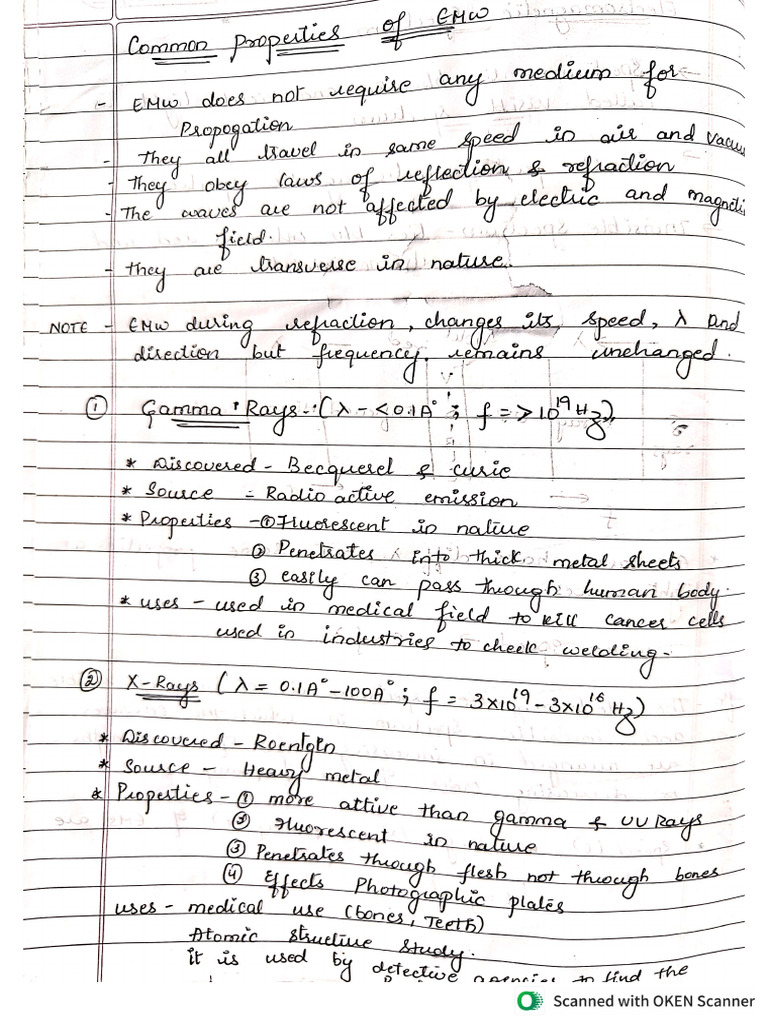 Common Properties of EMW
- EMW does not require any medium for
Propogation
- They all travel in same speed in air and vacuu
- They obey laws of reflection & refraction
- The waves are not affected by electric and magneti
field.
- they are transverse in nature.
NOTE - EMW during refraction, changes its speed, λ and
direction but frequency remains unchanged.
① Gamma Rays :- (λ - <0.1A° ; f = > 10¹⁹ Hz)
* Discovered - Becquerel & curie
* Source = Radio active emission
* Properties - ① Fluorescent in native
② Penetrates into thick metal sheets
③ easily can pass through human body.
* uses - used in medical field to kill cancer cells
used in industries to check welding.
② X-Rays (λ = 0.1A° - 100A° ; f = 3x10¹⁹ - 3x10¹⁶ Hz)
* Discovered - Roentgen
* Source - Heavy metal
* Properties - ① more attive than gamma & UV Rays
② Fluorescent in nature
③ Penetrates through flesh not through bones
④ Effects Photographic plates
uses - medical use (bones, Teeth)
Atomic structure study.
it is used by detective agencies to find the
Scanned with OKEN Scanner